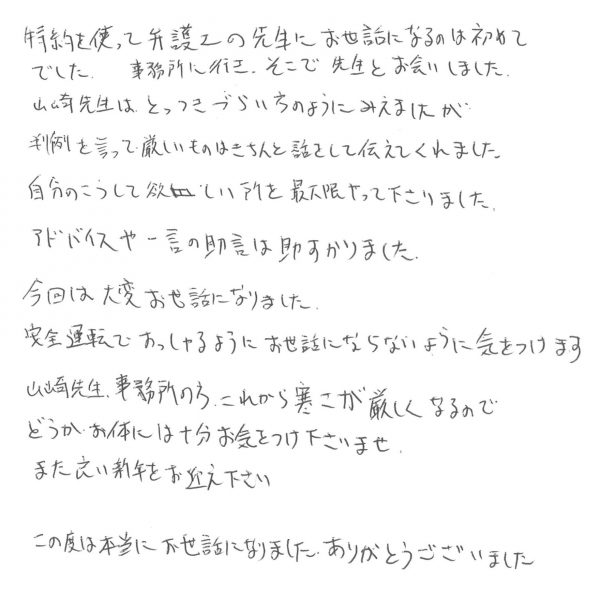 特約を使って弁護士の先生にお世話になるのは初めて
でした。 事務所に行き、そこで 先生とお会いしました。
山崎先生は、とっつきづらい方のようにみえましたが
判例を言って厳しいものはきちんと話をして伝えてくれました。
自分のこうして欲しい所を最大限やって下さりました。
アドバイスや一言の助言は助すかりました。
今回は大変お世話になりました。
安全運転でおっしゃるようにお世話にならないように気をつけます
山崎先生、事務所の方、これから寒さが厳しくなるので
どうかお体には十分お気をつけ下さいませ。
また良い新年をお迎え下さい
この度は本当にお世話になりました。ありがとうございました